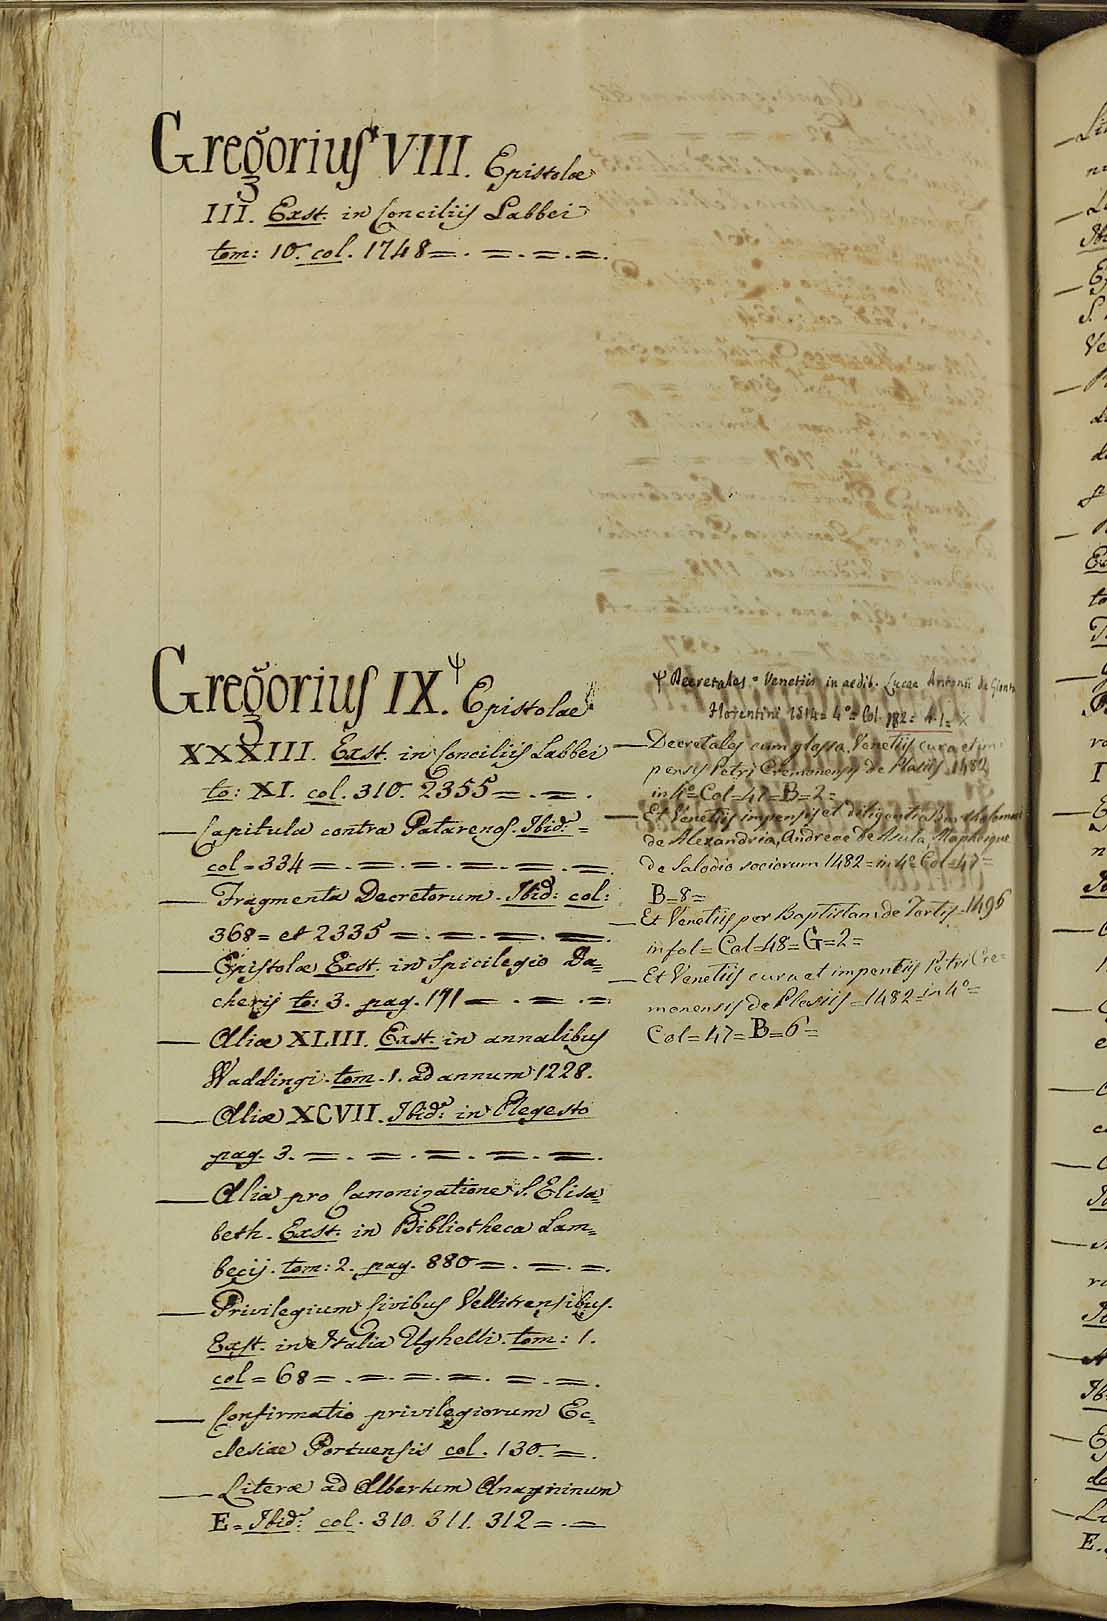 Gregorius VIII. Epistolæ
III. Exst. in Conciliis Labbei
tom: 10. col. 1748 = . = . = . = .
Gregorius IX. Ψ Epistolæ
XXXIII. Exst. in Conciliis Labbei
to: XI. col. 310. 2355 = . = .
— Capitula contra Patarenos. Ibid: =
col = 334 = . = . = . = . = . = .
— Fragmenta Decretorum. Ibid: col:
368 = et 2335 = . = . = . = .
— Epistolæ Exst. in Spicilegio Da=
cherij to: 3. pag. 171 = . = . =
— Aliæ XLIII. Exst. in annalibus
Waddingi. tom. 1. ad annum 1228.
— Aliæ XCVII. Ibid: in Regesto
pag. 3. = . = . = . = . = .
— Alia pro Canonizatione S. Elisa=
beth. Exst. in Bibliotheca Lam=
becij. tom: 2. pag. 880 = . = . = .
— Privilegium Civibus Vellitrensibus.
Exst. in Italia Ughelli. tom: 1.
col = 68 = . = . = . = . = . = .
— Confirmatio privilegiorum Ec=
clesiæ Portuensis col. 130. = .
— Literæ ad Albertum Anagninum
E = Ibid: col. 310. 311. 312 = . =
Ψ Decretales = Venetiis in aedib. Lucae Antonii de Giunta
Florentini 1514 = 4º = Col. 182 = A. 1 =
— Decretales cum glossa. Venetiis cura et im
pensis Petri Cremonensis de Plasiis 1482
in 4º = Col = 47 = B = 2 =
— Et Venetiis impensis et diligentia Bartholomaei
de Alexandria, Andreae de Asula Mapheique
de Salodio sociorum 1482 = in 4º Col = 47 =
B = 8 =
— Et Venetiis per Baptistam de Tortis = 1496
in fol = Col = 48 = G = 2 =
— Et Venetiis cura et impensis Petri Cre=
monensis de Plasiis = 1482 = in 4º =
Col = 47 = B = 6 =